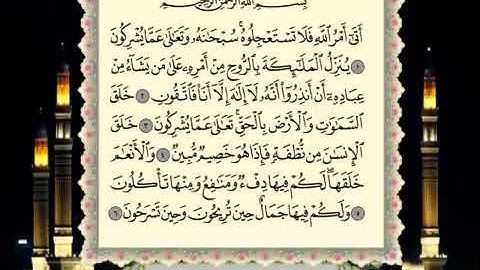 بِسْمِ اللَّهِ الرَّحْمَٰنِ الرَّحِيمِ
أَتَىٰٓ أَمْرُ ٱللَّهِ فَلَا تَسْتَعْجِلُوهُ ۚ سُبْحَـٰنَهُۥ وَتَعَـٰلَىٰ عَمَّا يُشْرِكُونَ
١ يُنَزِّلُ ٱلْمَلَـٰٓئِكَةَ بِٱلرُّوحِ مِنْ أَمْرِهِۦ عَلَىٰ مَن يَشَآءُ مِنْ
عِبَادِهِۦٓ أَنْ أَنذِرُوٓا۟ أَنَّهُۥ لَآ إِلَـٰهَ إِلَّآ أَنَا۠ فَٱتَّقُونِ ٢ خَلَقَ
ٱلسَّمَـٰوَٰتِ وَٱلْأَرْضَ بِٱلْحَقِّ ۚ تَعَـٰلَىٰ عَمَّا يُشْرِكُونَ ٣ خَلَقَ
ٱلْإِنسَـٰنَ مِن نُّطْفَةٍ فَإِذَا هُوَ خَصِيمٌ مُّبِينٌ ٤ وَٱلْأَنْعَـٰمَ
خَلَقَهَا ۗ لَكُمْ فِيهَا دِفْءٌ وَمَنَـٰفِعُ وَمِنْهَا تَأْكُلُونَ
٥ وَلَكُمْ فِيهَا جَمَالٌ حِينَ تُرِيحُونَ وَحِينَ تَسْرَحُونَ ٦